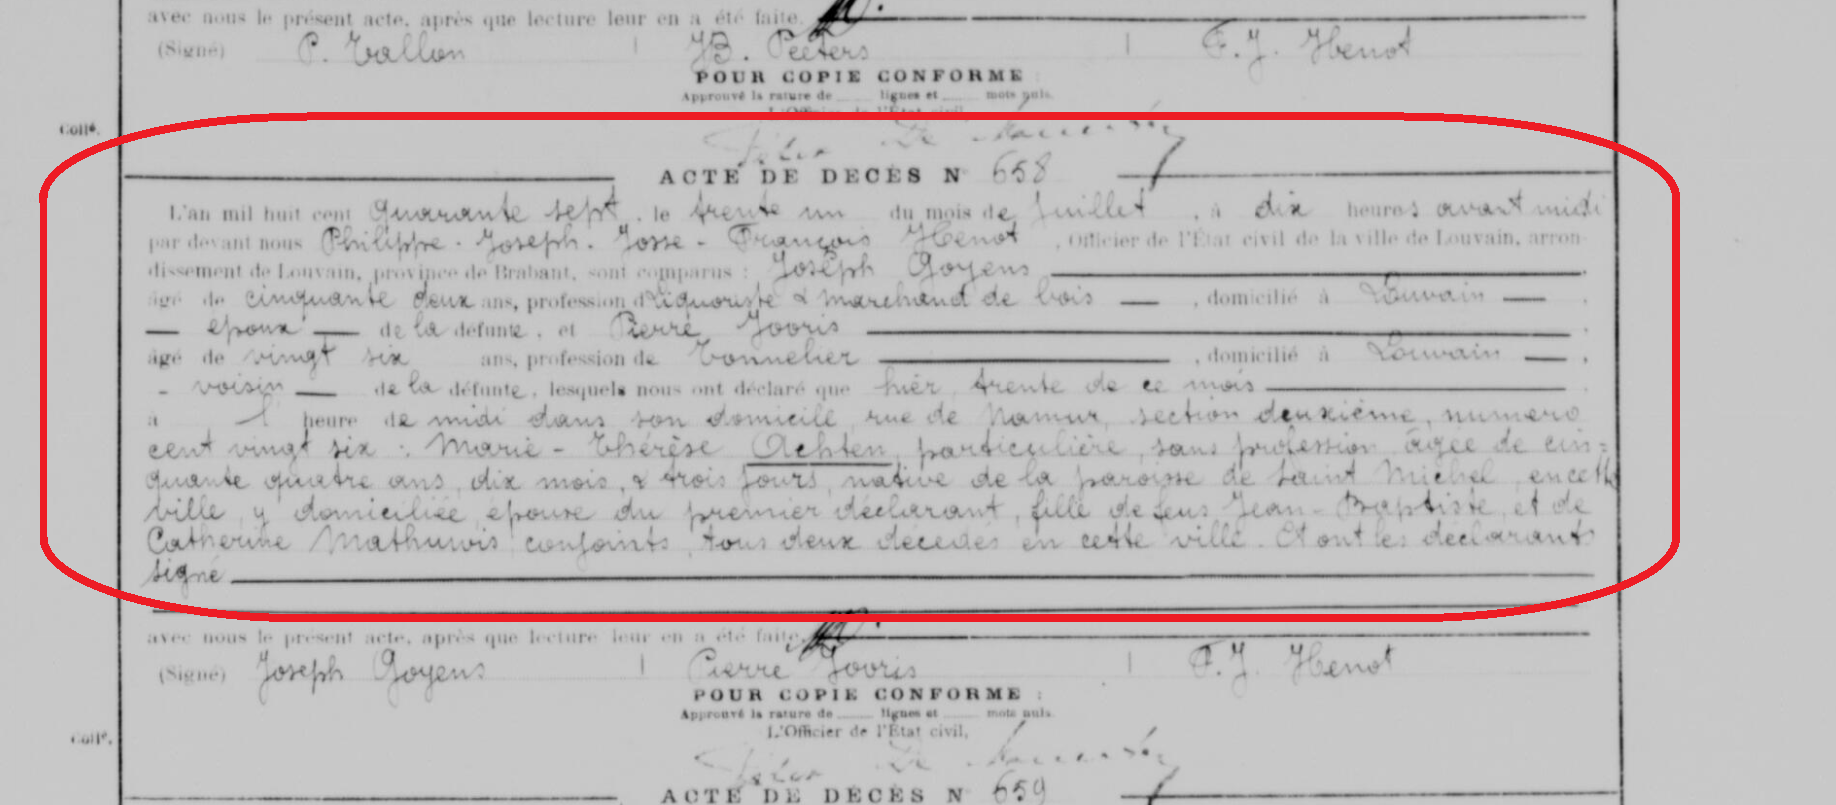 avec nous le présent acte, après que lecture leur en a été faite.
(Signé) P. Tallon JB. Peeters F. J. Henot
POUR COPIE CONFORME :
Approuvé la rature de lignes et mots nuls.
L'Officier de l'État civil,
Collé.
ACTE DE DECÈS N 658
L'an mil huit cent quarante sept, le trente un du mois de Juillet, à dix heures avant midi
par devant nous Philippe-Joseph-Josse-François Henot, Officier de l'État civil de la ville de Louvain, arron-
dissement de Louvain, province de Brabant, sont comparus : Joseph Goyens
âgé de cinquante deux ans, profession d Liquoriste & marchand de bois, domicilié à Louvain,
époux de la défunte, et Pierre Jooris
âgé de vingt six ans, profession de Tonnelier, domicilié à Louvain,
voisin de la défunte, lesquels nous ont déclaré que hier, trente de ce mois
à 1 heure de midi dans son domicile, rue de Namur, section deuxième, numero
cent vingt six : Marie-Thérèse Achten, particulière, sans profession agée de cin=
quante quatre ans, dix mois, & trois jours, native de la paroisse de Saint Michel, en cette
ville, y domiciliée, épouse du premier déclarant, fille de feus Jean-Baptiste, et de
Catherine Mathuwis, conjoints, tous deux décédés en cette ville. Et ont les déclarants
signé
avec nous le présent acte, après que lecture leur en a été faite.
(Signé) Joseph Goyens Pierre Jooris F. J. Henot
POUR COPIE CONFORME :
Approuvé la rature de lignes et mots nuls.
L'Officier de l'État civil,
Collé.
ACTE DE DÉCÈS N 659